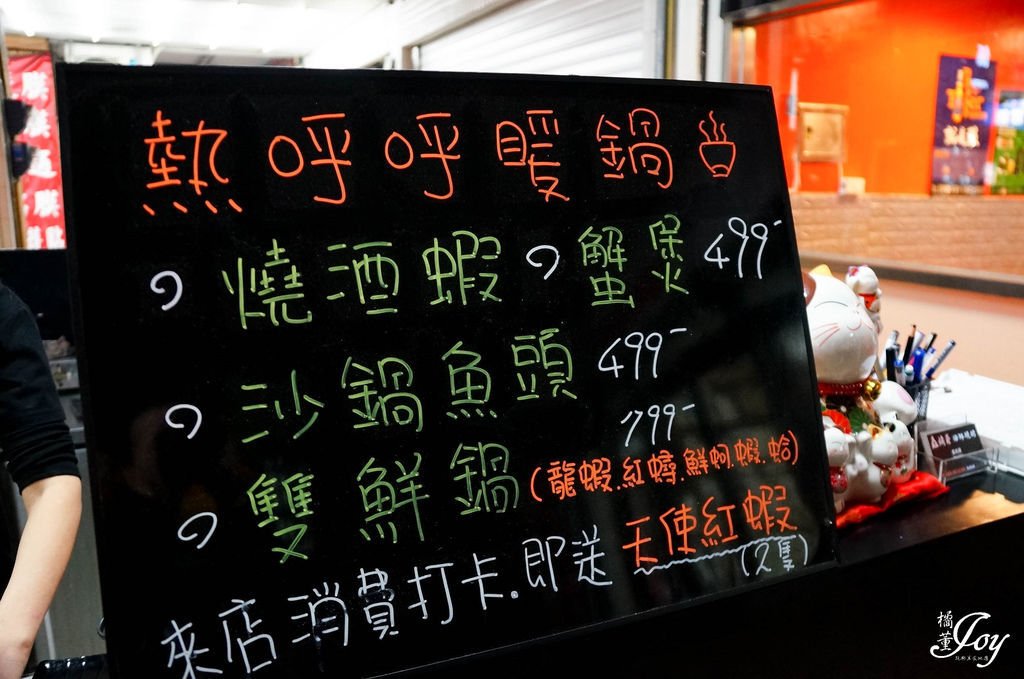 熱呼呼暖鍋
燒酒蝦 蟹煲 499-
沙鍋魚頭 499-
雙鮮鍋 1799-
(龍蝦.紅蟳.鮮蚵.蝦.蛤)
來店消費打卡.即送 天使紅蝦
(2隻)
橘董
Joy